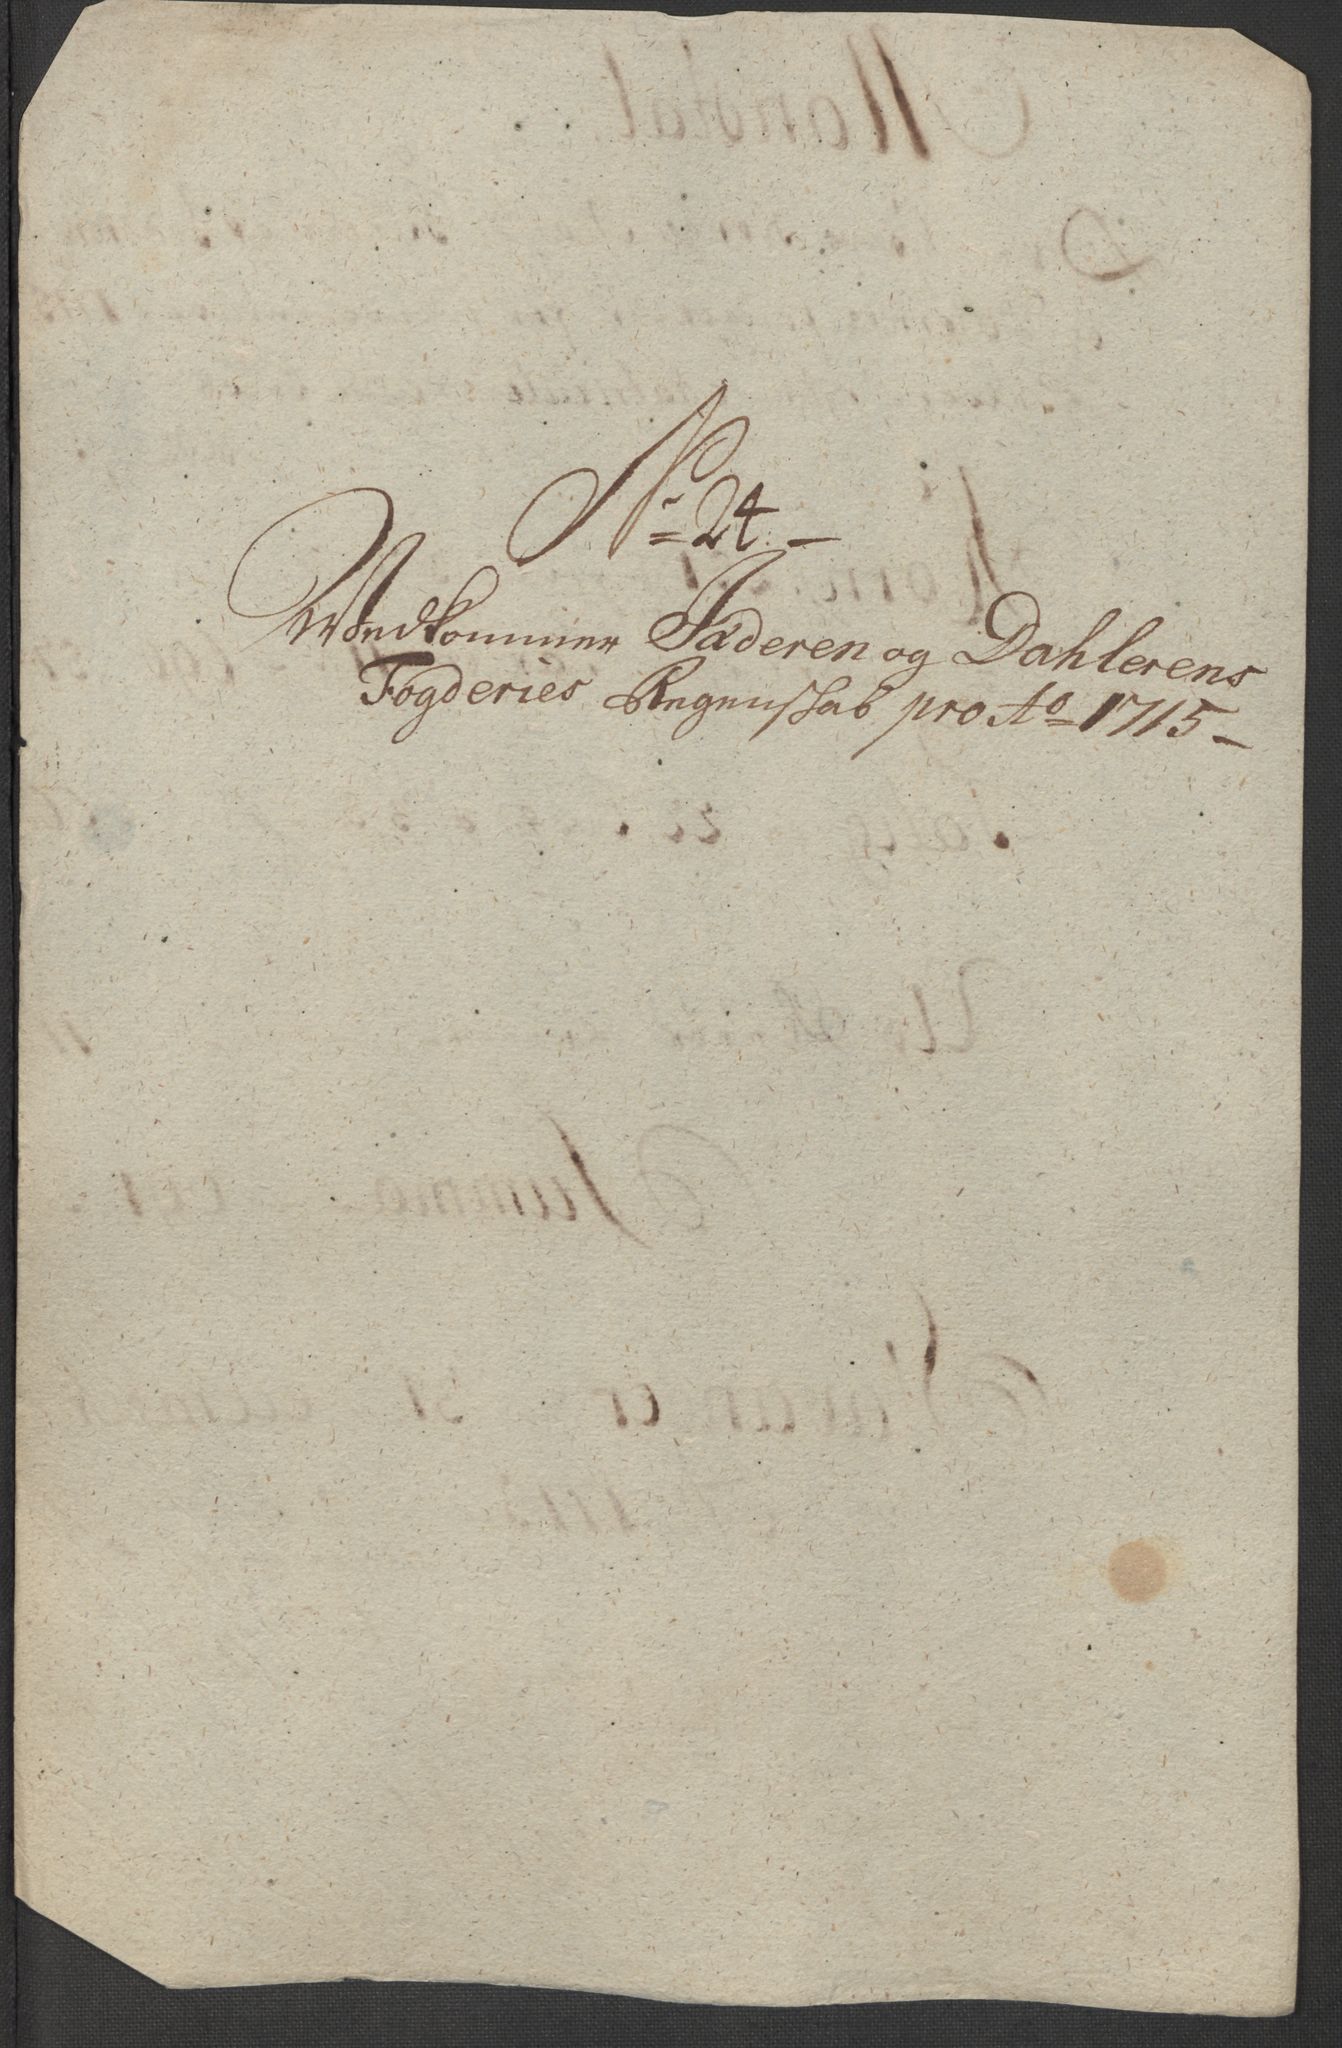 No 24.
Wedkommer Jæderen og Dahlerens
Fogderies Regenskab pro Ao 1715